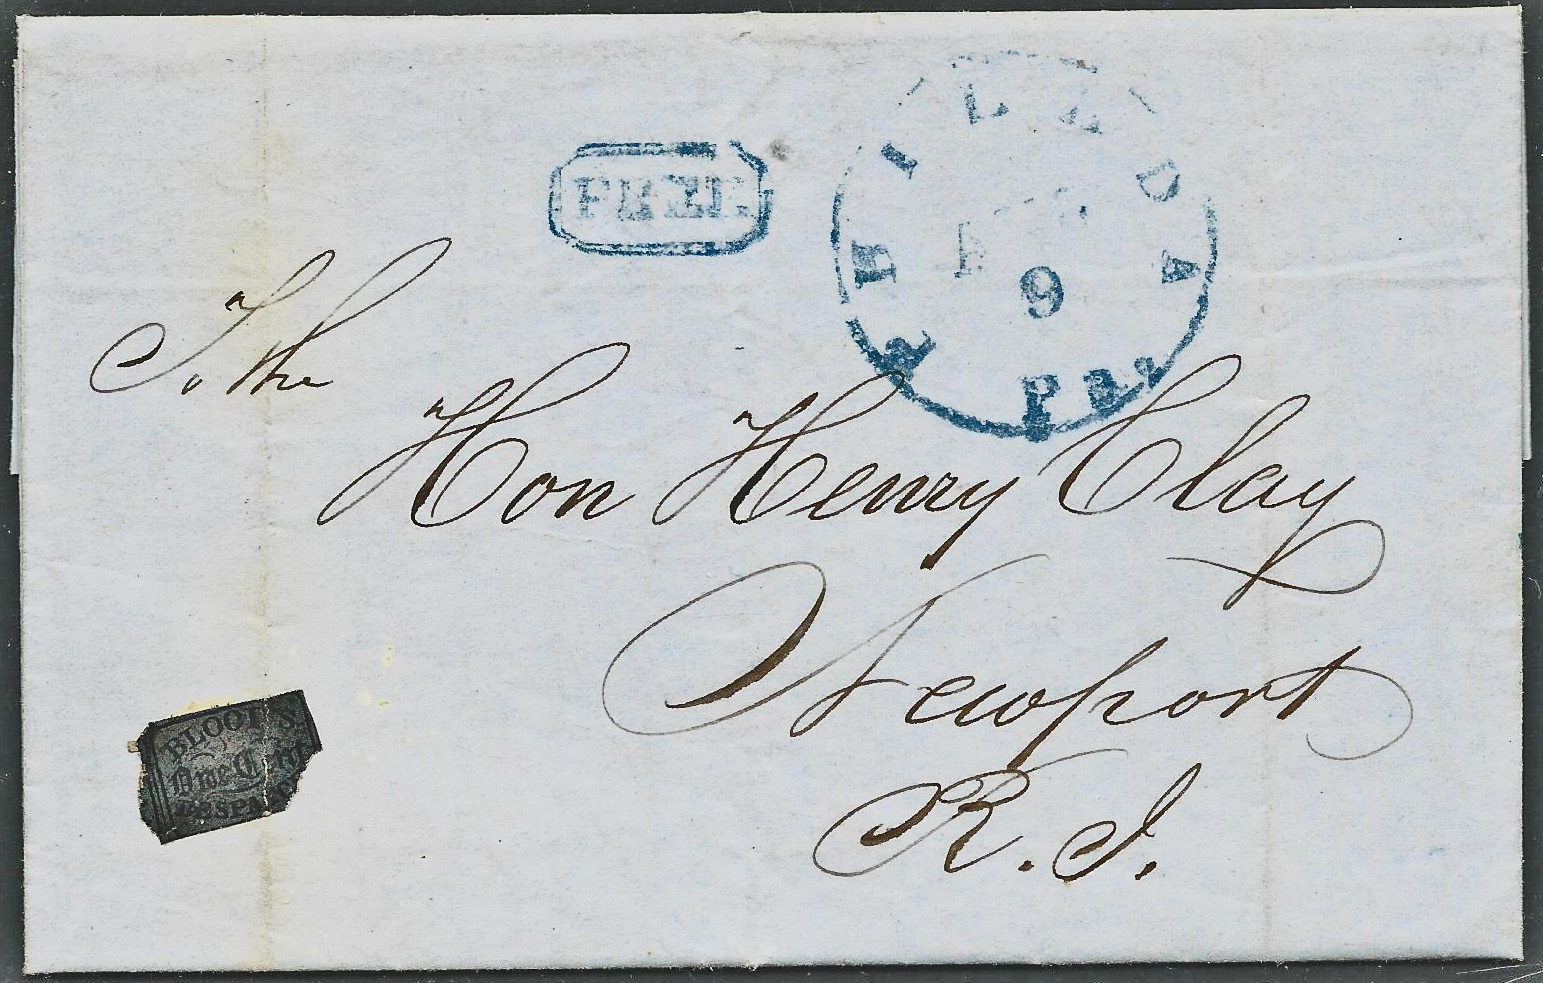 FREE
PHILADA
9
Pa.
To. the
Hon Henry Clay
Newport
R. I.
BLOOD'S
One Cent
DESPATCH